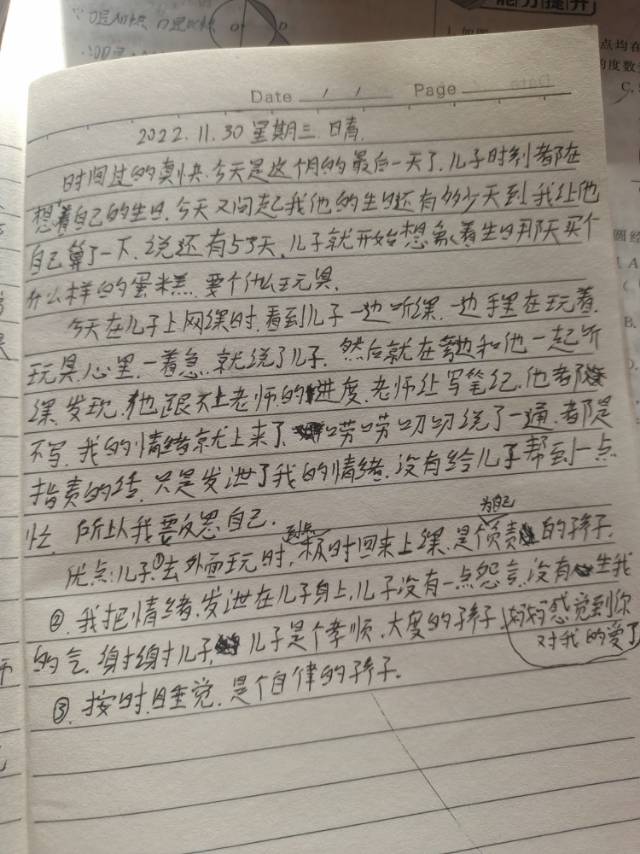 能力提升
Date / / Page
2022.11.30 星期三 晴.
时间过的真快.今天是这个月的最后一天了,儿子时刻都在
想着自己的生日.今天又问起我他的生日还有多少天到.我让他
自己算了一下.说还有53天.儿子就开始想象着生日那天买个
什么样的蛋糕.要个什么玩具.
今天在儿子上网课时.看到儿子一边听课.一边手里在玩着
玩具.心里一着急.就说了儿子.然后就在旁边和他一起听
课.发现.他跟不上老师的进度.老师让写笔记.他都
不写.我的情绪就上来了.唠唠叨叨说了一通.都是
指责的话.只是发泄了我的情绪.没有给儿子帮到一点
忙.所以我要反思自己.
到点 为自己
优点:儿子①去外面玩时,按时回来上课.是个负责的孩子.
②.我把情绪.发泄在儿子身上,儿子没有一点怨言.没有生我
的气.谢谢儿子,儿子是个孝顺.大度的孩子.妈妈感觉到你
对我的爱了
③.按时睡觉.是个自律的孩子.